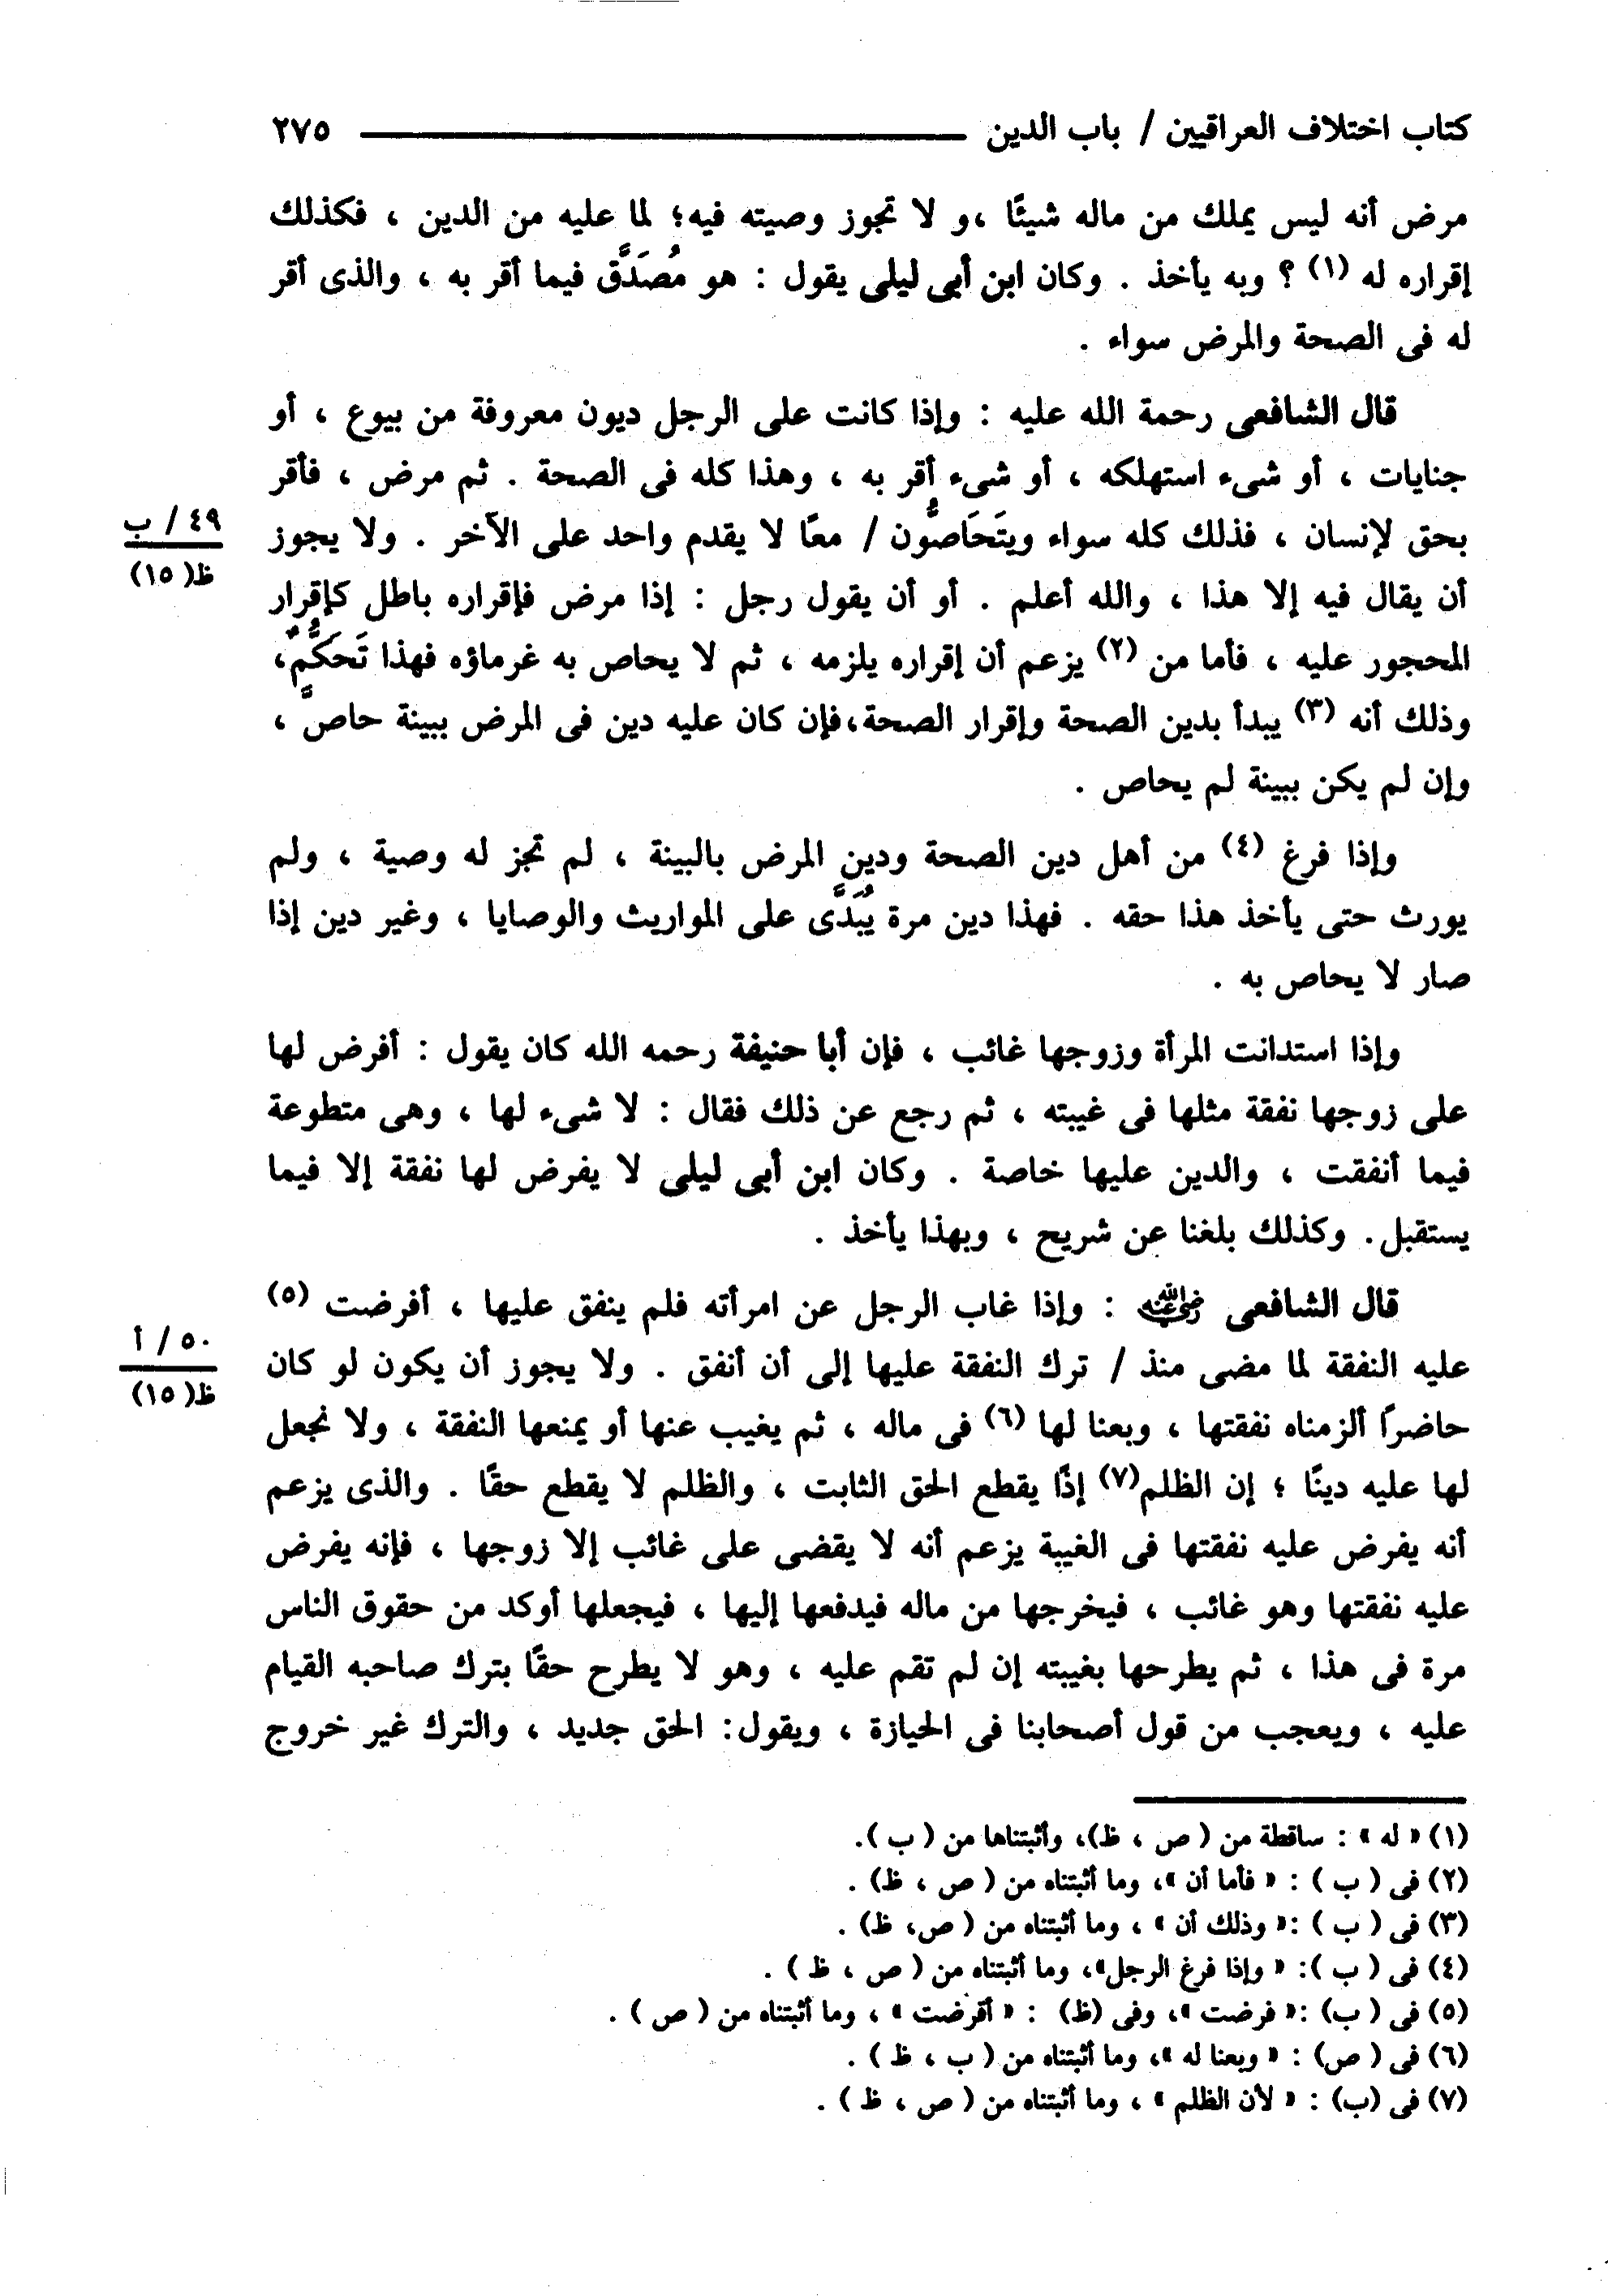 كتاب اختلاف العراقيين / باب الدين ٢٧٥
مرض أنه ليس يملك من ماله شيئًا ،و لا تجوز وصيته فيه؛ لما عليه من الدين ، فكذلك
إقراره له (١) ؟ وبه يأخذ . وكان ابن أبى ليلى يقول : هو مُصَدَّق فيما أقر به ، والذى أقر
له فى الصحة والمرض سواء .
قال الشافعى رحمة الله عليه : وإذا كانت على الرجل ديون معروفة من بيوع ، أو
جنايات ، أو شىء استهلكه ، أو شىء أقر به ، وهذا كله فى الصحة . ثم مرض ، فأقر
بحق لإنسان ، فذلك كله سواء ويتَحَاصُّون / معًا لا يقدم واحد على الآخر . ولا يجوز
٤٩/ ب
ظ(١٥)
أن يقال فيه إلا هذا ، والله أعلم . أو أن يقول رجل : إذا مرض فإقراره باطل كإقرار
المحجور عليه ، فأما من (٢) يزعم أن إقراره يلزمه ، ثم لا يحاص به غرماؤه فهذا تَحَكُّمٌ،
وذلك أنه (٣) يبدأ بدين الصحة وإقرار الصحة،فإن كان عليه دين فى المرض ببينة حاصٍّ ،
وإن لم يكن ببينة لم يحاص .
وإذا فرغ (٤) من أهل دين الصحة ودين المرض بالبينة ، لم تجز له وصية ، ولم
يورث حتى يأخذ هذا حقه . فهذا دين مرة يُبَدَّى على المواريث والوصايا ، وغير دين إذا
صار لا يحاص به .
وإذا استدانت المرأة وزوجها غائب ، فإن أبا حنيفة رحمه الله كان يقول : أفرض لها
على زوجها نفقة مثلها فى غيبته ، ثم رجع عن ذلك فقال : لا شىء لها ، وهى متطوعة
فيما أنفقت ، والدين عليها خاصة . وكان ابن أبى ليلى لا يفرض لها نفقة إلا فيما
يستقبل. وكذلك بلغنا عن شريح ، وبهذا يأخذ .
قال الشافعى رضي الله عنه : وإذا غاب الرجل عن امرأته فلم ينفق عليها ، أفرضت (٥)
عليه النفقة لما مضى منذ / ترك النفقة عليها إلى أن أنفق . ولا يجوز أن يكون لو كان
٥٠/ أ
ظ(١٥)
حاضرًا ألزمناه نفقتها ، وبعنا لها (٦) فى ماله ، ثم يغيب عنها أو يمنعها النفقة ، ولا نجعل
لها عليه دينًا ؛ إن الظلم(٧) إذًا يقطع الحق الثابت ، والظلم لا يقطع حقًا . والذى يزعم
أنه يفرض عليه نفقتها فى الغيبة يزعم أنه لا يقضى على غائب إلا زوجها ، فإنه يفرض
عليه نفقتها وهو غائب ، فيخرجها من ماله فيدفعها إليها ، فيجعلها أوكد من حقوق الناس
مرة فى هذا ، ثم يطرحها بغيبته إن لم تقم عليه ، وهو لا يطرح حقًا بترك صاحبه القيام
عليه ، ويعجب من قول أصحابنا فى الحيازة ، ويقول: الحق جديد ، والترك غير خروج
(١) « له » : ساقطة من ( ص ، ظ)، وأثبتناها من ( ب ).
(٢) فى ( ب ) : « فأما أن »، وما أثبتناه من ( ص ، ظ) .
(٣) فى ( ب ) :« وذلك أن » ، وما أثبتناه من ( ص، ظ) .
(٤) فى ( ب ): « وإذا فرغ الرجل»، وما أثبتناه من ( ص ، ظ ) .
(٥) فى ( ب) :« فرضت »، وفى (ظ) : « أقرضت » ، وما أثبتناه من ( ص ) .
(٦) فى ( ص) : « وبعنا له »، وما أثبتناه من ( ب ، ظ ) .
(٧) فى (ب) : « لأن الظلم » ، وما أثبتناه من ( ص ، ظ ) .